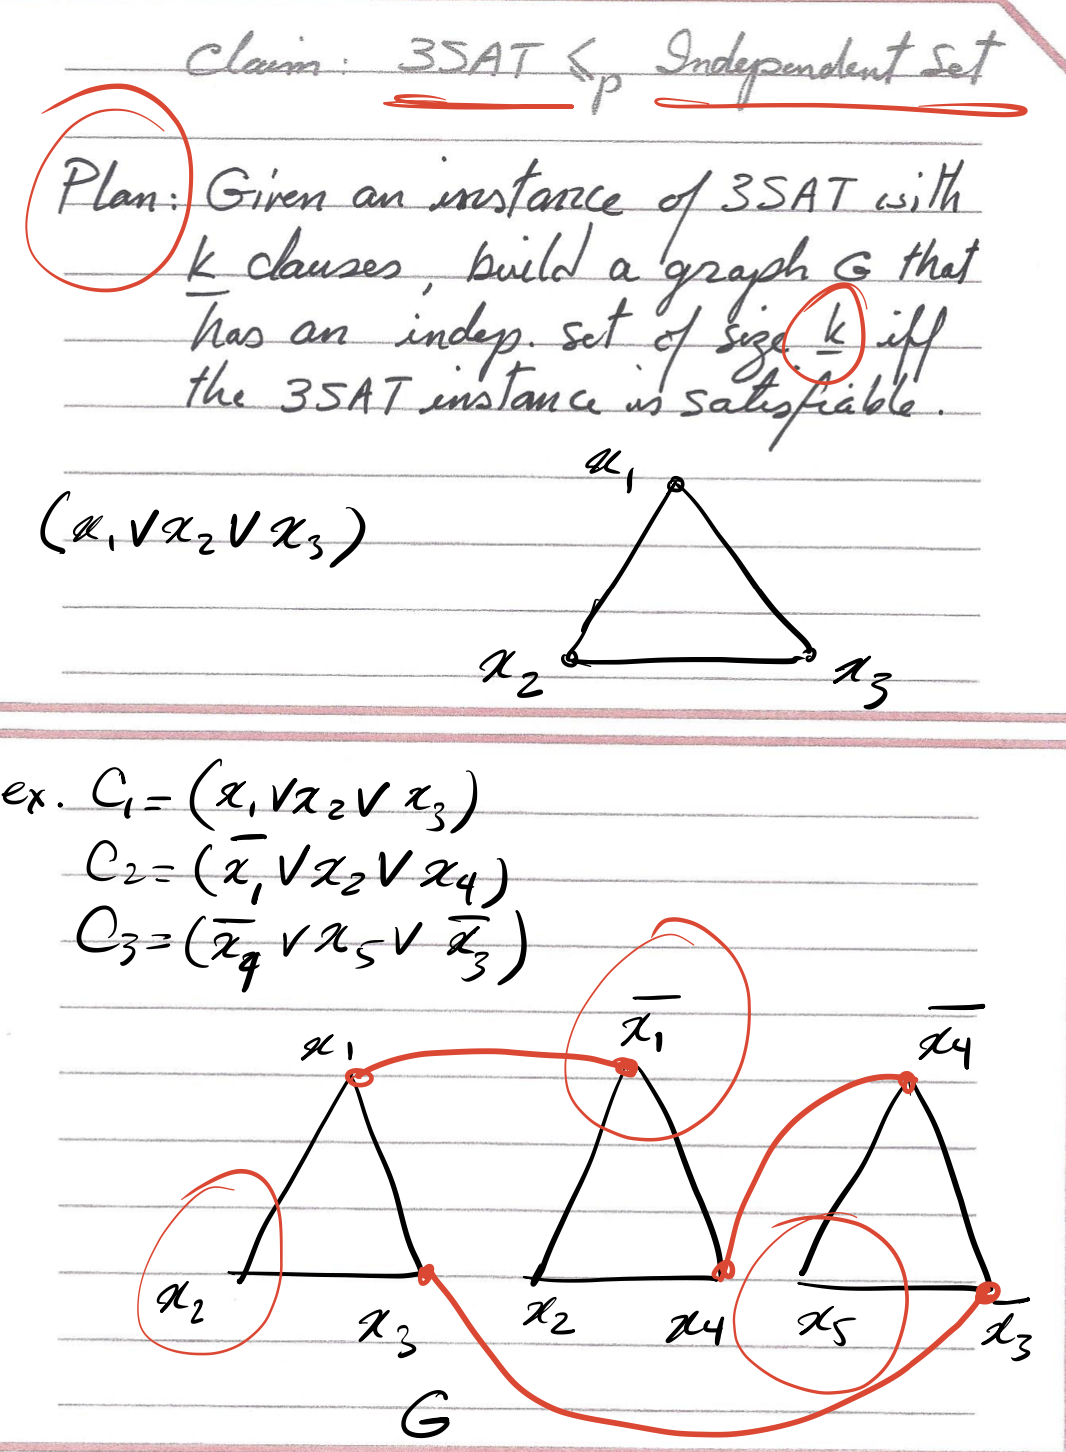 Claim: 3SAT ≤p Independent Set
Plan: Given an instance of 3SAT with
k clauses, build a graph G that
has an indep. set of size k iff
the 3SAT instance is satisfiable.
x₁
(x₁ ∨ x₂ ∨ x₃)
x₂ x₃
ex. C₁ = (x₁ ∨ x₂ ∨ x₃)
C₂ = (x̅₁ ∨ x₂ ∨ x₄)
C₃ = (x̅₄ ∨ x₅ ∨ x̅₃)
x₁ x̅₁ x̅₄
x₂ x₃ x₂ x₄ x₅ x̅₃
G